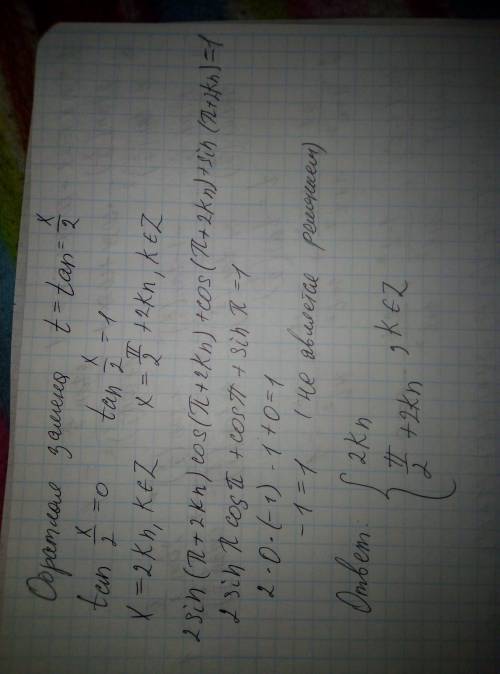 Обратная замена t = tan = x/2
tan x/2 = 0 tan x/2 = 1
x = 2kn, k∈Z x = π/2 + 2kn, k∈Z
2sin(π+2kn) cos(π+2kn) + cos(π+2kn) + sin(π+2kn) = 1
2 sin π cos π + cos π + sin π = 1
2·0·(-1)·1+0=1
-1 = 1 (не является решением)
Ответ: { 2kn
π/2 + 2kn , k∈Z